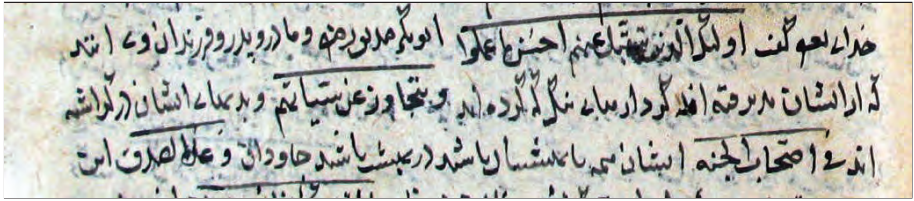 خدای تعو گفت اولئک الذین نتقبل عنهم احسن ما عملوا ابوبکر صدیق رضه و مادر و پدر و فرزندان وی اند
که از ایشان پذیرفته اند کردارهای نیکو که کرده اند و نتجاوز عن سیئاتهم و بدیهای ایشان در گذاشته
اند فی اصحاب الجنه ایشان همه با بهشتیان باشند در بهشت باشند جاودان وعد الصدق این